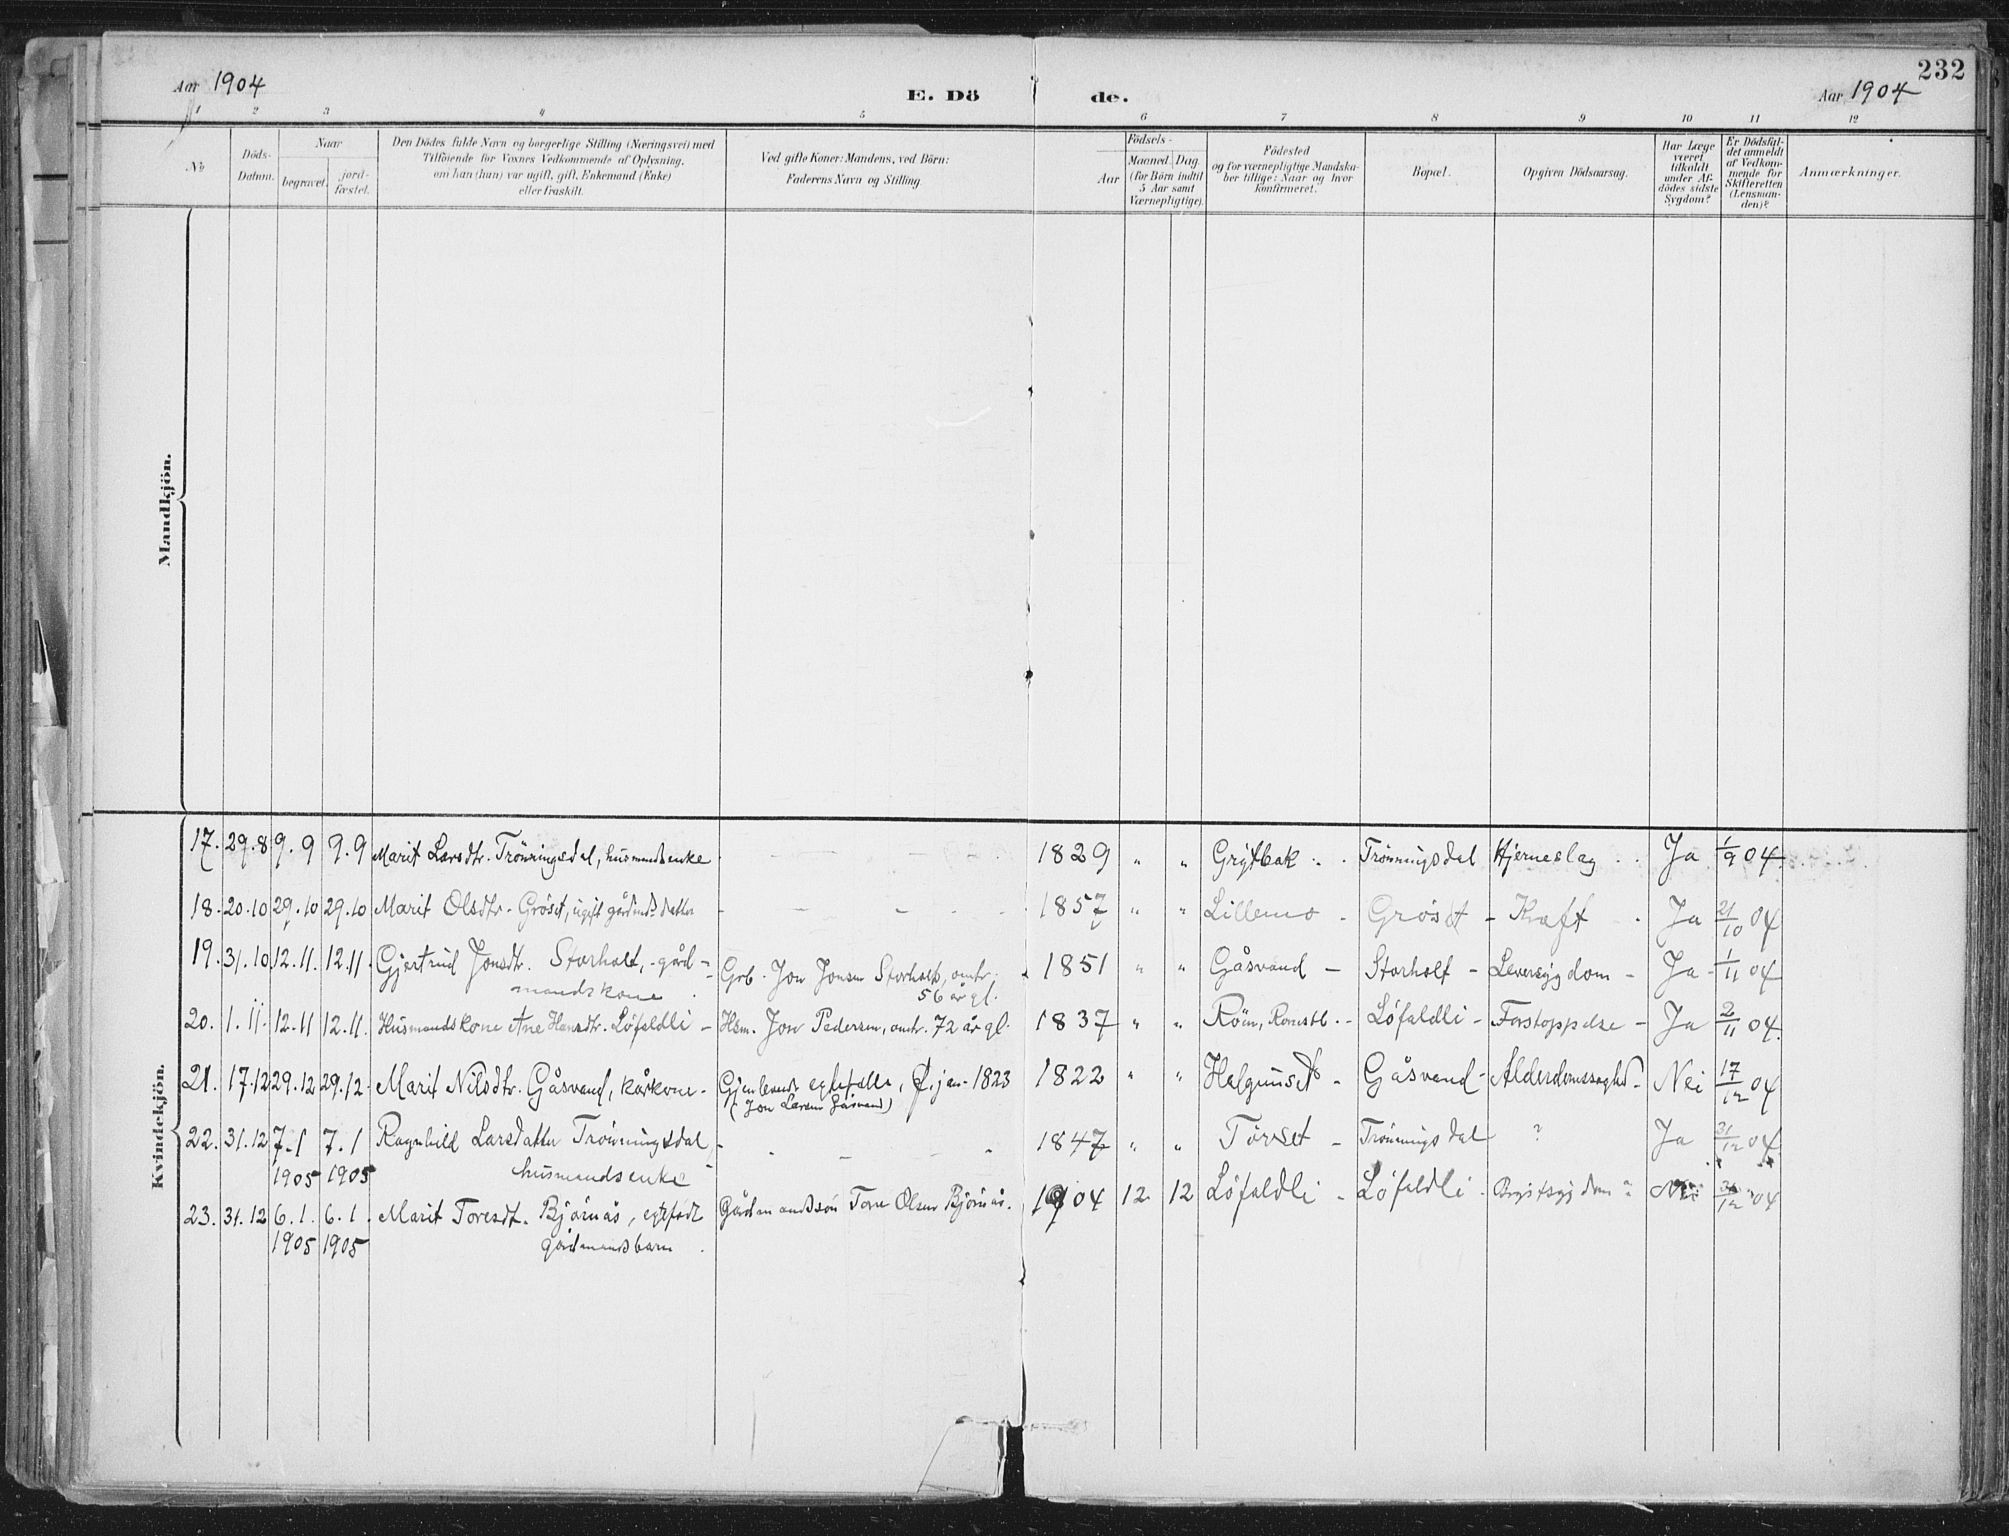 232
Aar 1904
E. Dö
de.
Aar 1904
1 2 3 4 5 6 7 8 9 10 11 12
No
Döds-
Datum.
Naar
begravet.
jord-
fæstet.
Den Dödes fulde Navn og borgerlige Stilling (Næringsvei) med
Tilföiende for Voxnes Vedkommende af Oplysning,
om han (hun) var ugift, gift, Enkemand (Enke)
eller fraskilt.
Ved gifte Koner: Mandens, ved Börn:
Faderens Navn og Stilling.
Födsels-
Aar
Maaned. Dag.
(for Börn indtil
5 Aar samt
Værnepligtige).
Födested
og for værnepligtige Mandska-
ber tillige: Naar og hvor
konfirmeret.
Bopæl.
Opgiven Dödsaarsag.
Har Læge
været
tilkaldt
under Af-
dödes sidste
Sygdom?
Er Dödsfal-
det anmeldt
af Vedkom-
mende for
Skifteretten
(Lensman-
den)?
Anmærkninger.
Mandkjön.
Kvindekjön.
17. 29.8 9.9 9.9 Marit Larsdtr. Trönningsdal, husmandsenke - - - 1829 " " Grytbak - Trönningsdal Hjerneslag Ja 1/9 04
18. 20.10 29.10 29.10 Marit Olsdtr. Gröset, ugift gårdmds datter - - - 1857 " " Lillemo - Gröset - Kræft Ja 21/10 04
19. 31.10 12.11. 12.11. Gjertrud Jonsdtr. Storholt, gård- Grb. Jon Jonsen Storholt, omtr. 1851 " " Gåsvand - Storholt - Leversygdom - Ja - 1/11 04
mandskone
56 år gl.
20. 1.11. 12.11 12.11. Husmandskone Ane Hansdtr. Löfaldli - Hsm. Jon Pedersen, omtr. 72 år gl. 1837 " " Röin, Romsdl. - Löfaldli - Forstoppelse - Ja 2/11 04.
21. 17.12 29.12 29.12. Marit Nilsdtr. Gåsvand, kårkone - Gjenlevende egtefælle, f. jan. 1823 1822 " " Halgunset - Gåsvand - Alderdomssvaghed - Nei 17/12 04
(Jon Larsen Gåsvand)
22. 31.12 7.1 7.1 Ragnhild Larsdatter Trönningsdal - - - 1847 " " Törset - Trönningsdal ? Ja 31/12 04
1905 1905 husmandsenke
23. 31.12 6.1. 6.1. Marit Toresdt. Björnås, egtefödt Gårdmandssön Tore Olsen Björnås. 1904 12 12 Löfaldli - Löfaldli - Brystsygdom ? Nei 31/12 04
1905 1905 gårdmandsbarn